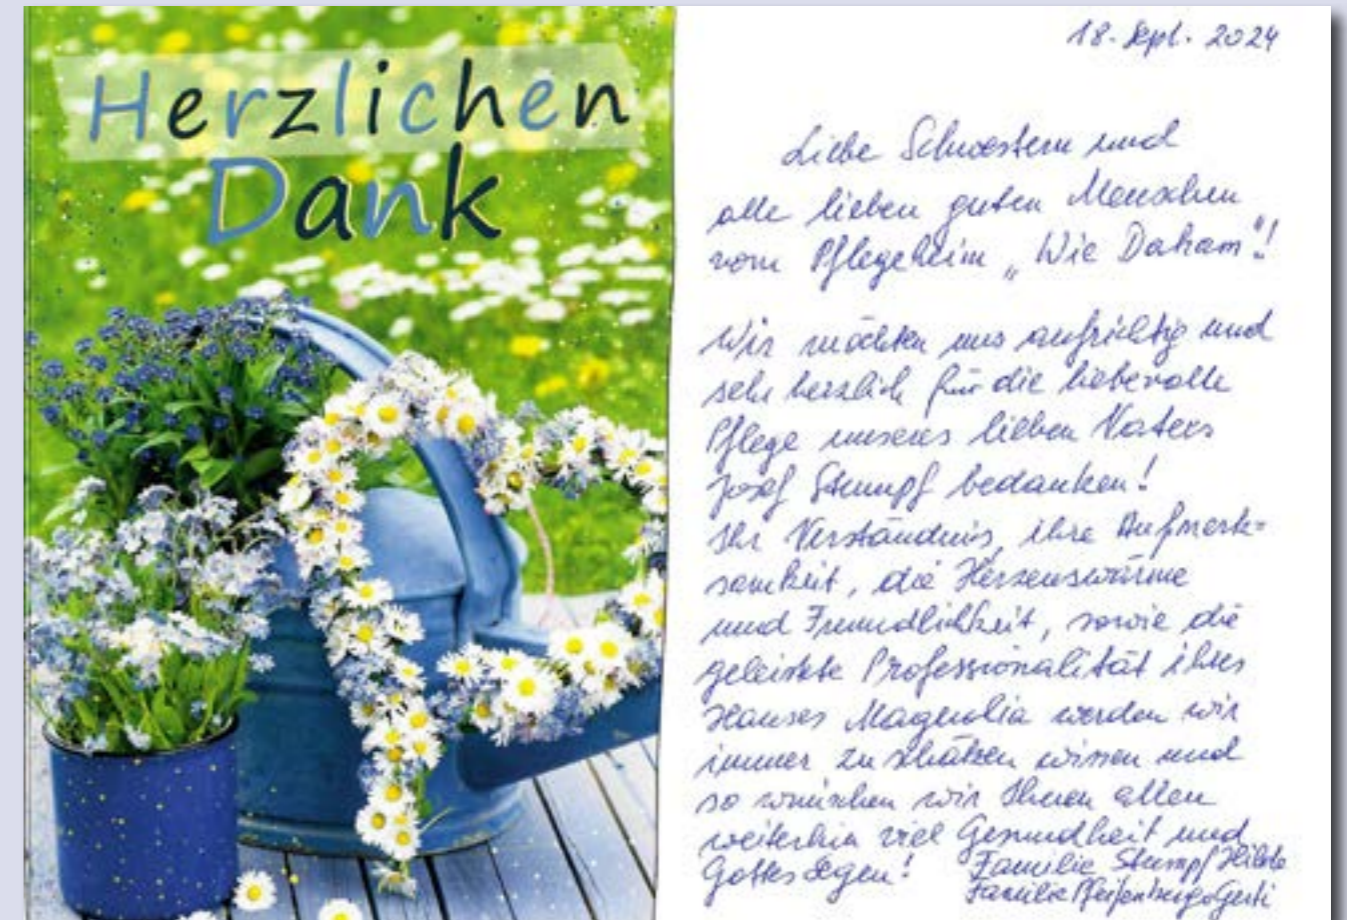 Herzlichen
Dank
18. Sept. 2024
Liebe Schwestern und
alle lieben guten Menschen
vom Pflegeheim „Wie Daham"!
Wir möchten uns aufrichtig und
sehr herzlich für die liebevolle
Pflege unseres lieben Vaters
Josef Stumpf bedanken!
Ihr Verständnis, ihre Aufmerk=
samkeit, die Herzenswärme
und Freundlichkeit, sowie die
geleistete Professionalität ihres
Hauses Magnolia werden wir
immer zu schätzen wissen und
so wünschen wir Ihnen allen
weiterhin viel Gesundheit und
Gottes Segen! Familie Stumpf
Familie Gerti